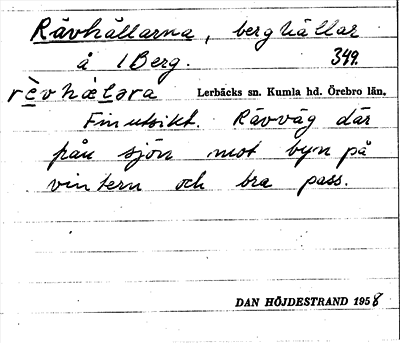 Rävhällarna, berghällar
å 1 Berg. 349.
rèvhæləra Lerbäcks sn. Kumla hd. Örebro län.
Fin utsikt. Rävväg där
från sjön mot byn på
vintern och bra pass.
DAN HÖJDESTRAND 1958